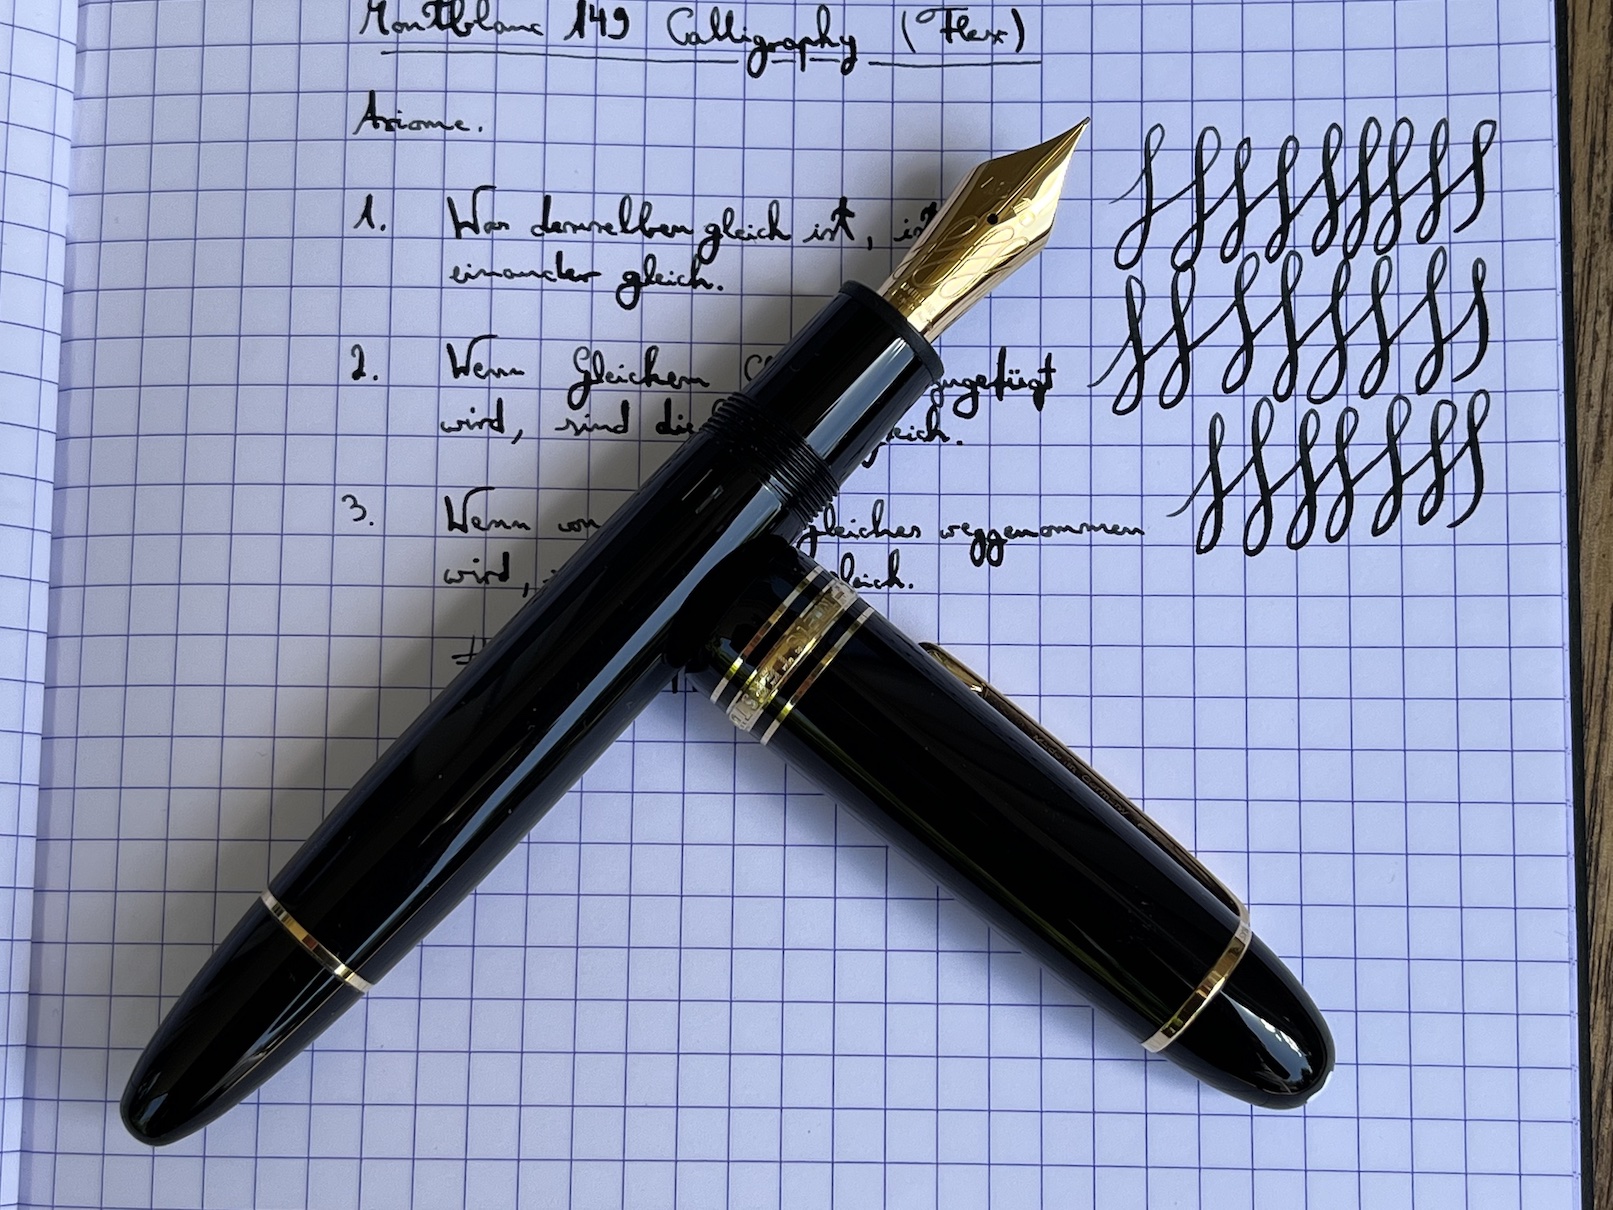 Montblanc 149 Calligraphy (Flex)
Axiome.
1. Was demselben gleich ist, ist
einander gleich.
2. Wenn Gleichem zugefügt
wird, sind die gleich.
3. Wenn von gleiches weggenommen
wird, gleich.
MONTBLANC
Made in Germany